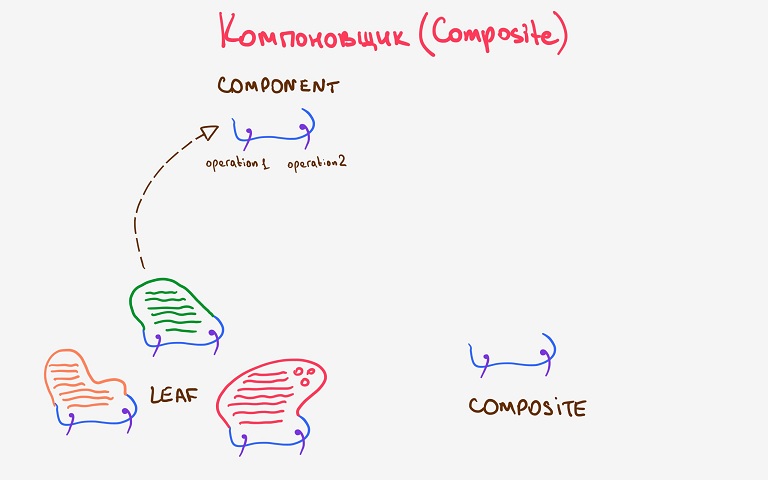 Компоновщик (Composite)
COMPONENT
operation1 operation2
LEAF
COMPOSITE